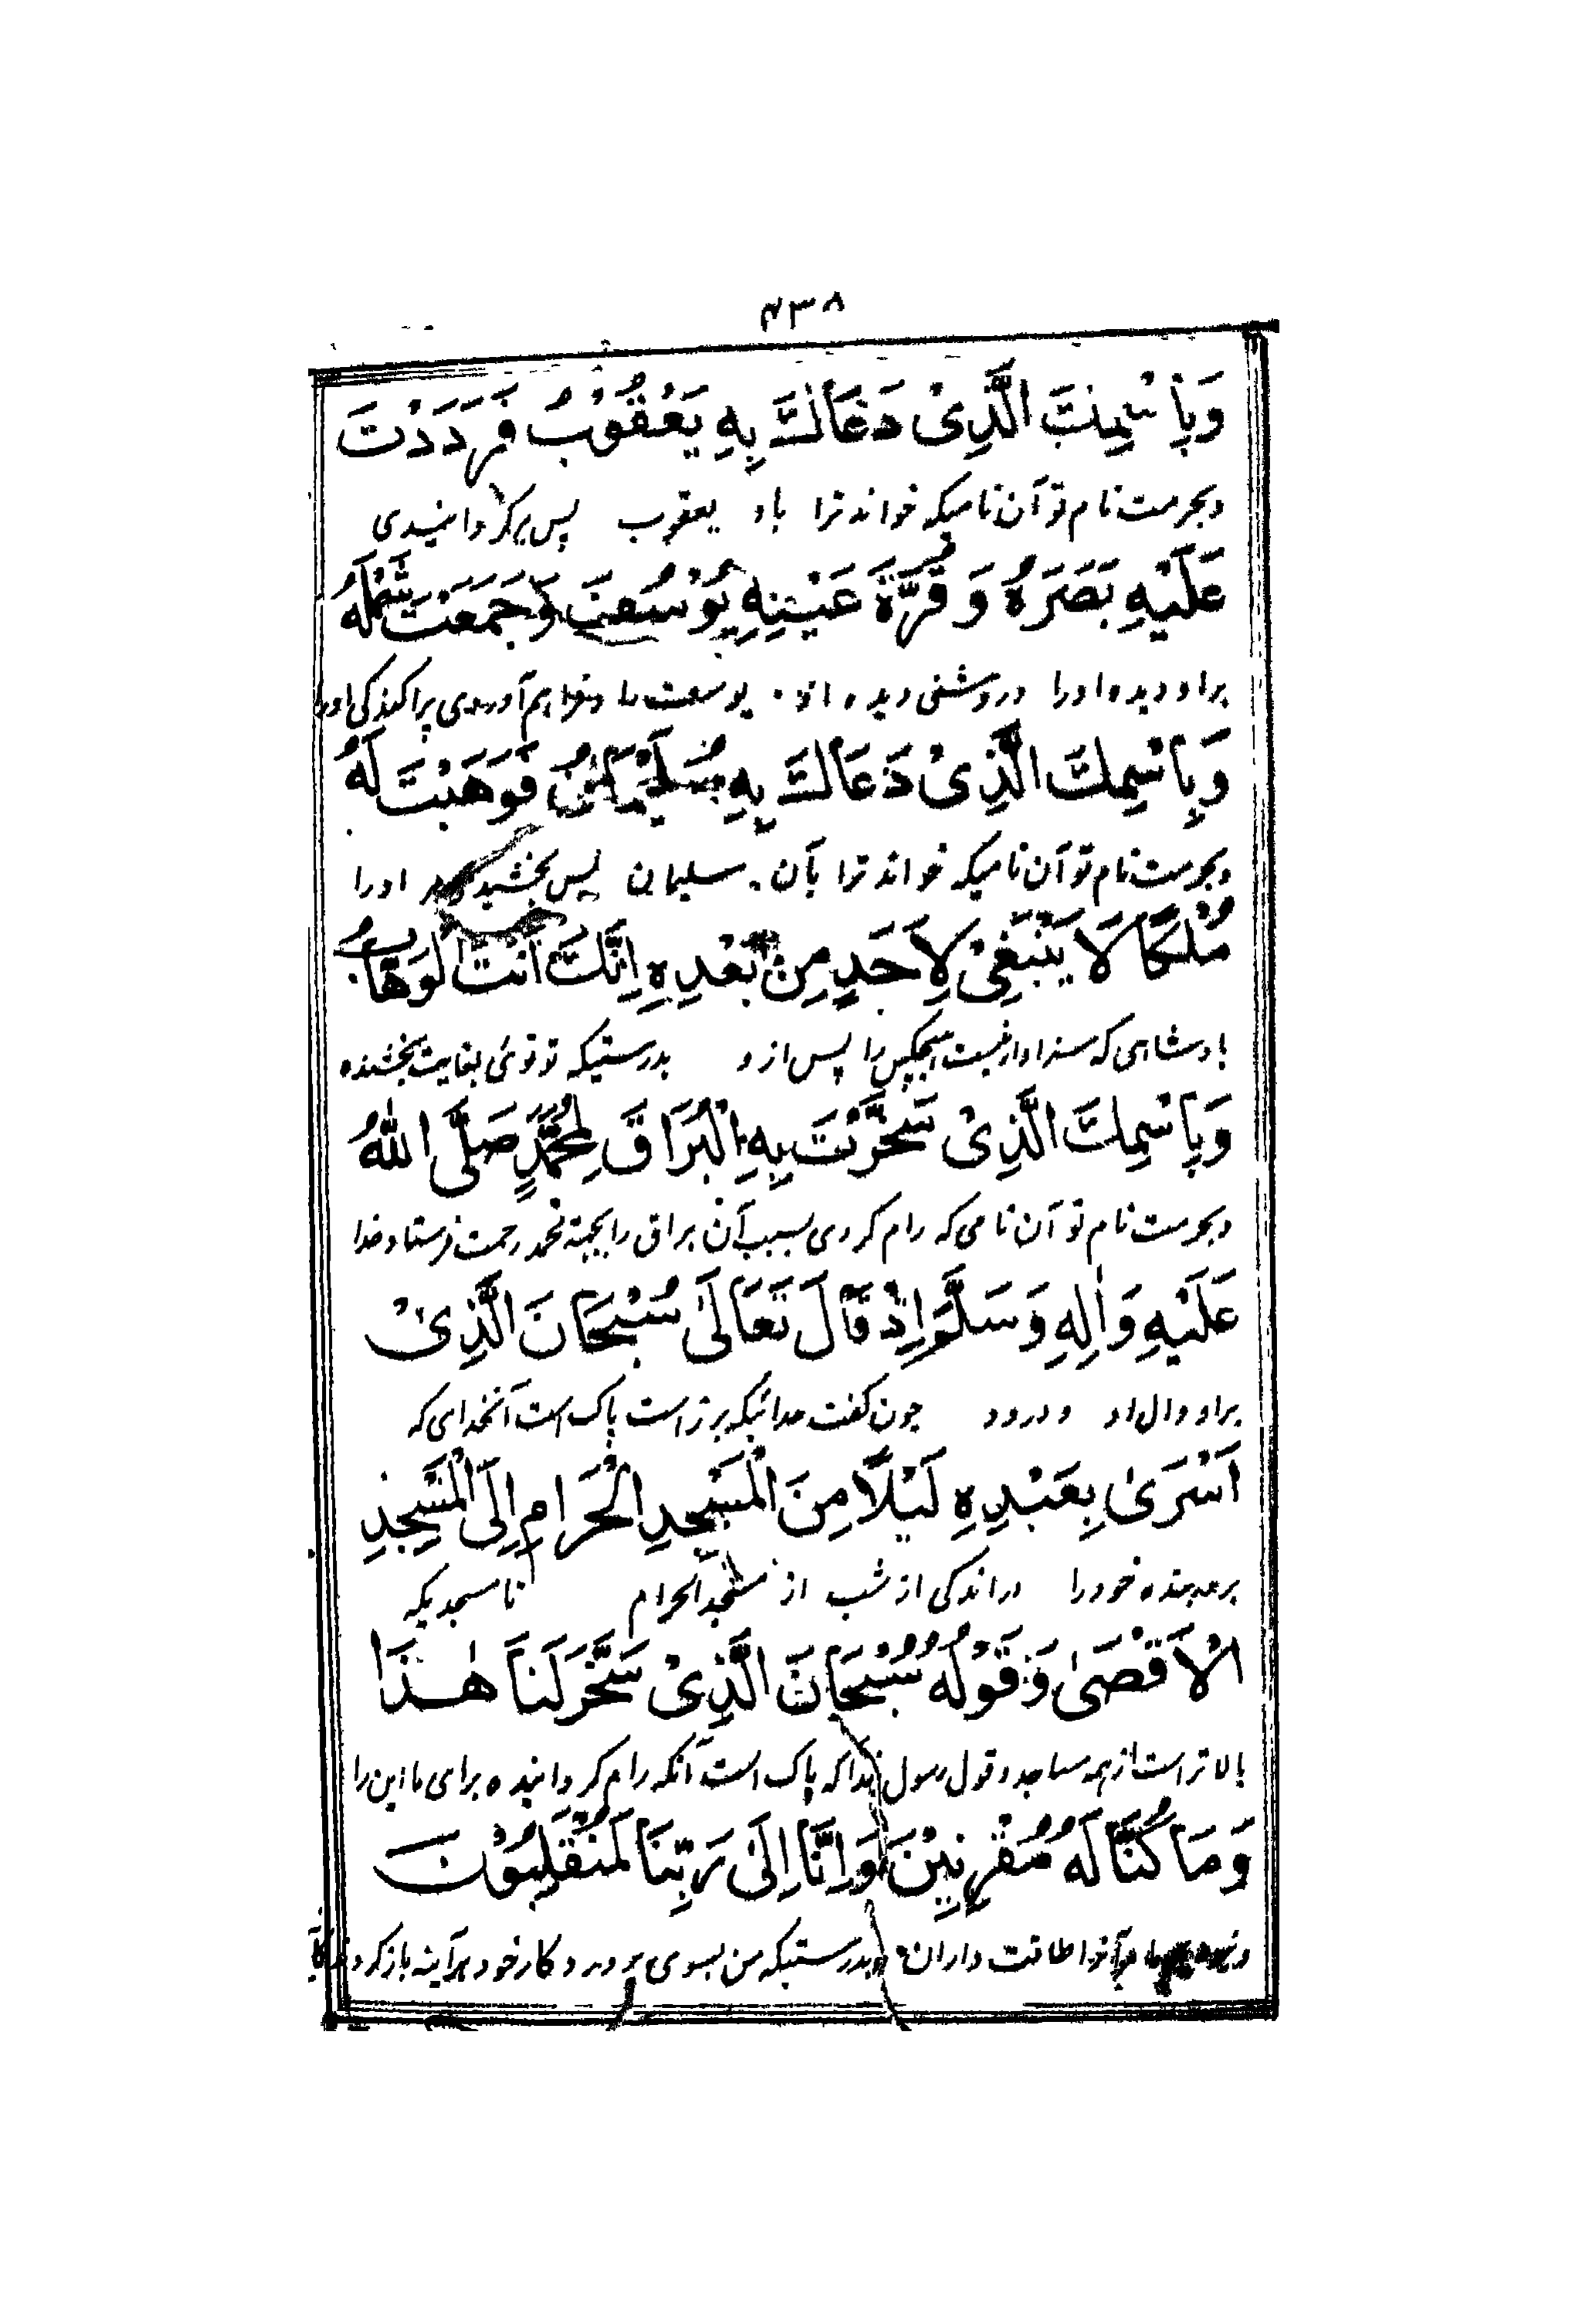 ۴۳۸
وَبِاسْمِكَ الَّذِیْ دَعَاكَ بِهِ یَعْقُوْبُ فَرَدَدْتَ
وبحرمت نام تو آن نامیکه خواند ترا باو یعقوب پس برگردانیدی
عَلَیْهِ بَصَرَهُ وَقُرَّةَ عَیْنِهِ یُوْسُفَ وَجَمَعْتَ شَمْلَهُ
براو دیده اورا وروشنی دیده او یوسف را وفراهم آوردی پراکندگی اورا
وَبِاسْمِكَ الَّذِیْ دَعَاكَ بِهِ سُلَیْمَانُ فَوَهَبْتَ لَهُ
وبحرمت نام تو آن نامیکه خواند ترا بآن سلیمان پس بخشیدی مر اورا
مُلْكًا لَا یَنْبَغِیْ لِاَحَدٍ مِنْ بَعْدِهِ اِنَّكَ اَنْتَ الْوَهَّابُ
بادشاهی که سزاوار نیست هیچکس را پس ازو بدرستیکه تو توئی بغایت بخشنده
وَبِاسْمِكَ الَّذِیْ سَخَّرْتَ بِهِ الْبُرَاقَ لِمُحَمَّدٍ صَلَّی اللهُ
وبحرمت نام تو آن نامی که رام کردی بسبب آن براق را بجهته محمد رحمت فرستاد خدا
عَلَیْهِ وَاٰلِهِ وَسَلَّمَ اِذْ قَالَ تَعَالٰی سُبْحَانَ الَّذِیْ
براو وال او ودرود چون گفت خدائیکه برتر است پاک است آنخدای که
اَسْرٰی بِعَبْدِهِ لَیْلًا مِنَ الْمَسْجِدِ الْحَرَامِ اِلَی الْمَسْجِدِ
برد بنده خود را در اندکی از شب از مسجد الحرام تا مسجدیکه
الْاَقْصٰی وَقَوْلُهُ سُبْحَانَ الَّذِیْ سَخَّرَ لَنَا هٰذَا
بالاتر است از همه مساجد وقول رسول خدا که پاک است آنکه رام گردانیده برای ما این را
وَمَا كُنَّا لَهُ مُقْرِنِیْنَ وَاِنَّا اِلٰی رَبِّنَا لَمُنْقَلِبُوْنَ
ما مرآنرا طاقت داران وبدرستیکه من بسوی پروردگار خود هرآینه